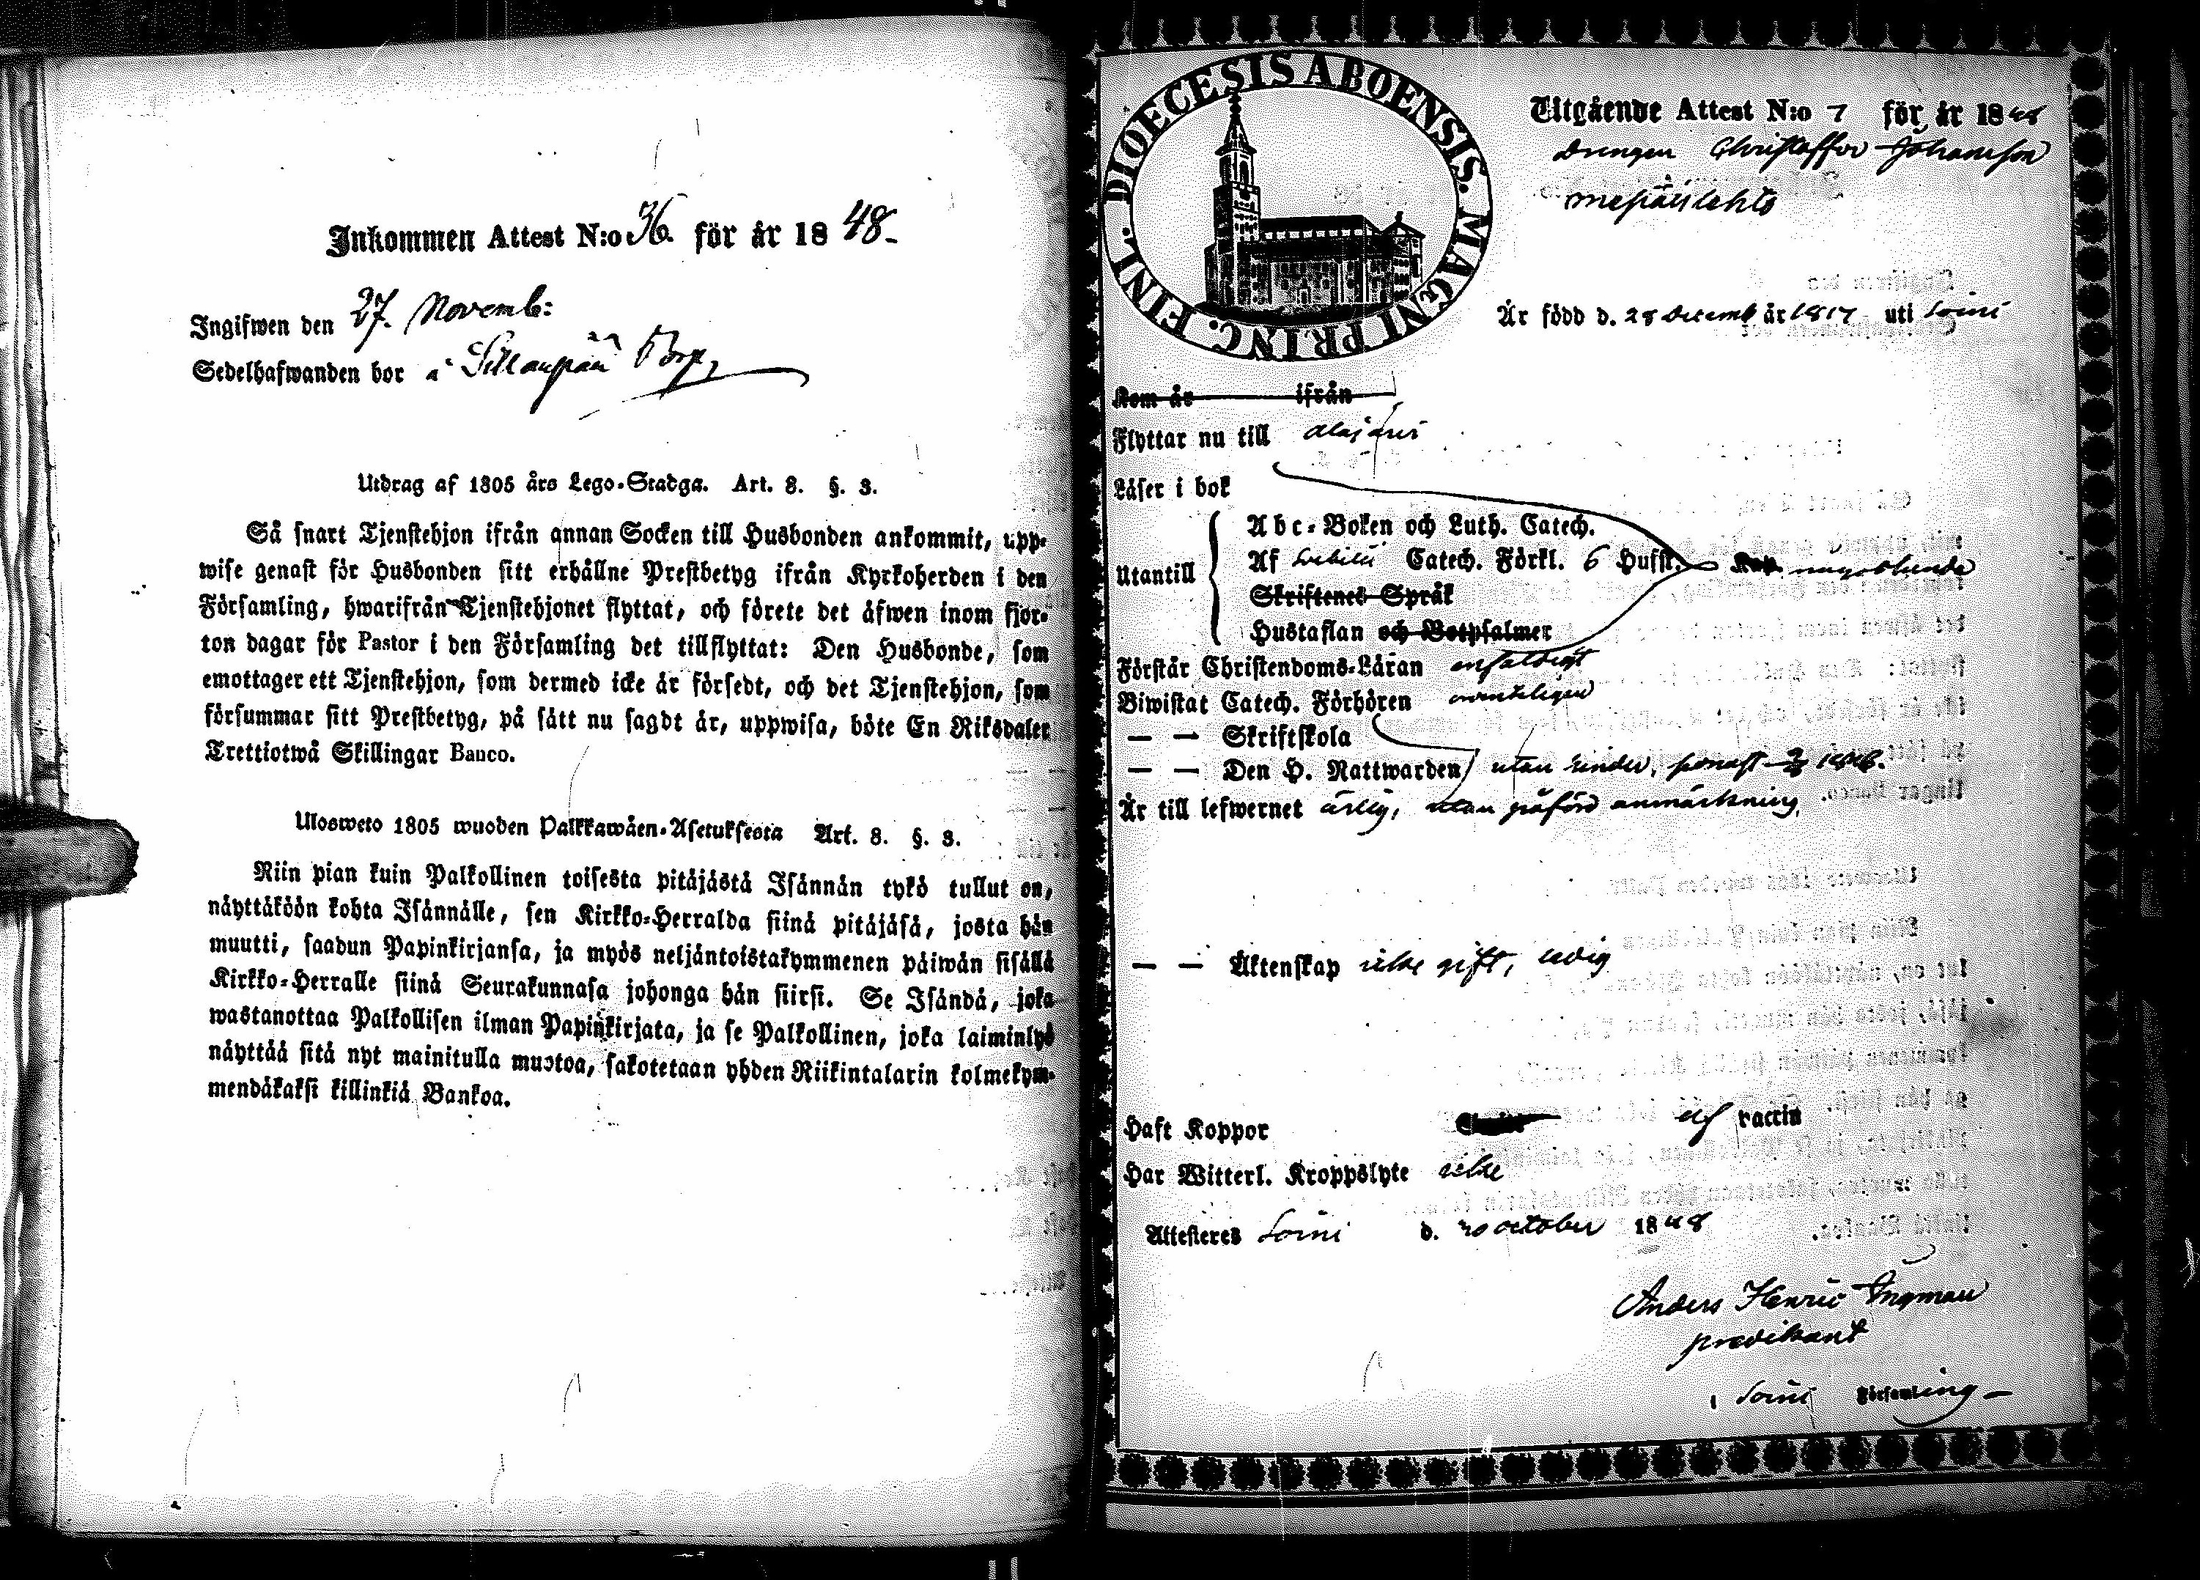 Inkommen Attest N:o 36. för år 1848.
Ingifwen den 27. Novemb:
Sedelhafwanden bor å Sillanpää Torp,
Utdrag af 1805 års Lego-Stadga. Art. 8. §. 3.
Så snart Tjenstehjon ifrån annan Socken till Husbonden ankommit, upp-
wise genast för Husbonden sitt erhållne Prestbetyg ifrån Kyrkoherden i den
Församling, hwarifrån Tjenstehjonet flyttat, och förete det äfwen inom fjor-
ton dagar för Pastor i den Församling det tillflyttat: Den Husbonde, som
emottager ett Tjenstehjon, som dermed icke är försedt, och det Tjenstehjon, som
försummar sitt Prestbetyg, på sätt nu sagdt är, uppwisa, böte En Riksdaler
Trettiotwå Skillingar Banco.
Ulosweto 1805 wuoden Palkkawäen-Asetuksesta Art. 8. §. 3.
Niin pian kuin Palkollinen toisesta pitäjästä Isännän tykö tullut on,
näyttäköön kohta Isännälle, sen Kirkko-Herralda siinä pitäjäsä, josta hän
muutti, saadun Papinkirjansa, ja myös neljäntoistakymmenen päiwän sisällä
Kirkko-Herralle siinä Seurakunnasa johonga hän siirsi. Se Isändä, joka
wastanottaa Palkollisen ilman Papinkirjata, ja se Palkollinen, joka laiminlyö
näyttää sitä nyt mainitulla muotoa, sakotetaan yhden Riikintalarin kolmekym-
mendäkaksi killinkiä Bankoa.
DIOECESIS ABOENSIS. MAGNI PRINC. FINL.
Utgående Attest N:o 7 för år 1848
Drengen Christoffer Johansson
Är född d. 28 Decemb år 1817 uti Soini
Kom år ifrån
Flyttar nu till Alajärvi
Läser i bok
Abc-Boken och Luth. Catech.
Utantill
Af Svebilii Catech. Förkl. 6 Hufst. någorlunda
Skriftenes Språk
Hustaflan och Botpsalmer
Förstår Christendoms-Läran enfaldigt
Biwistat Catech. Förhören ordenteligen
— — Skriftskola
— — Den H. Nattwarden utan hinder, senast 1848.
Är till lefwernet ärlig, utan påförd anmärkning.
— — Äktenskap icke gift, ledig
Haft Koppor af vaccin
Har Witterl. Kroppslyte icke
Attesteres Soini d. 20 October 1848
Anders Henric Ingman
predikant
i Soini Församling